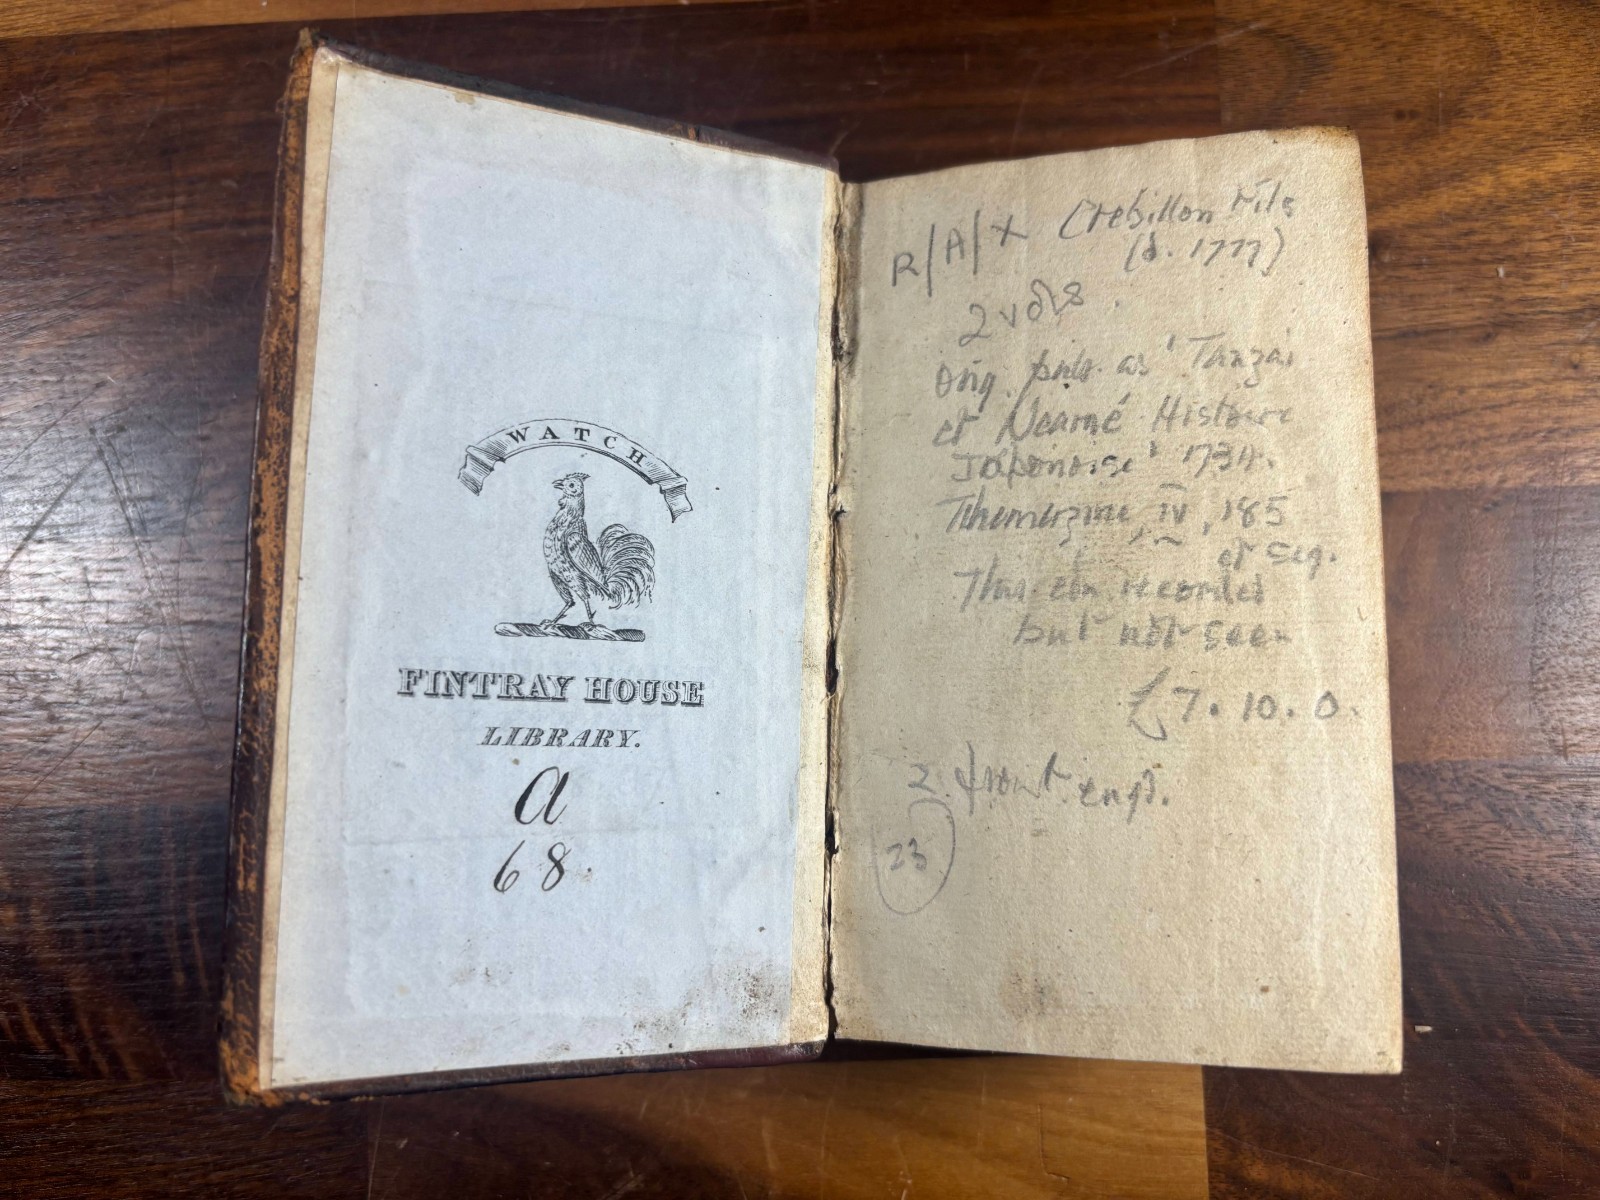 WATCH
FINTRAY HOUSE
LIBRARY.
A
68.
R/A/X Crebillon Fils
(d. 1777)
2 vols.
Orig. pub. as 'Tanzai
et Néarné Histoire
Japonaise' 1734.
IV, 185
et seq.
This edn recorded
but not seen
£7.10.0.
2 front engd.
23